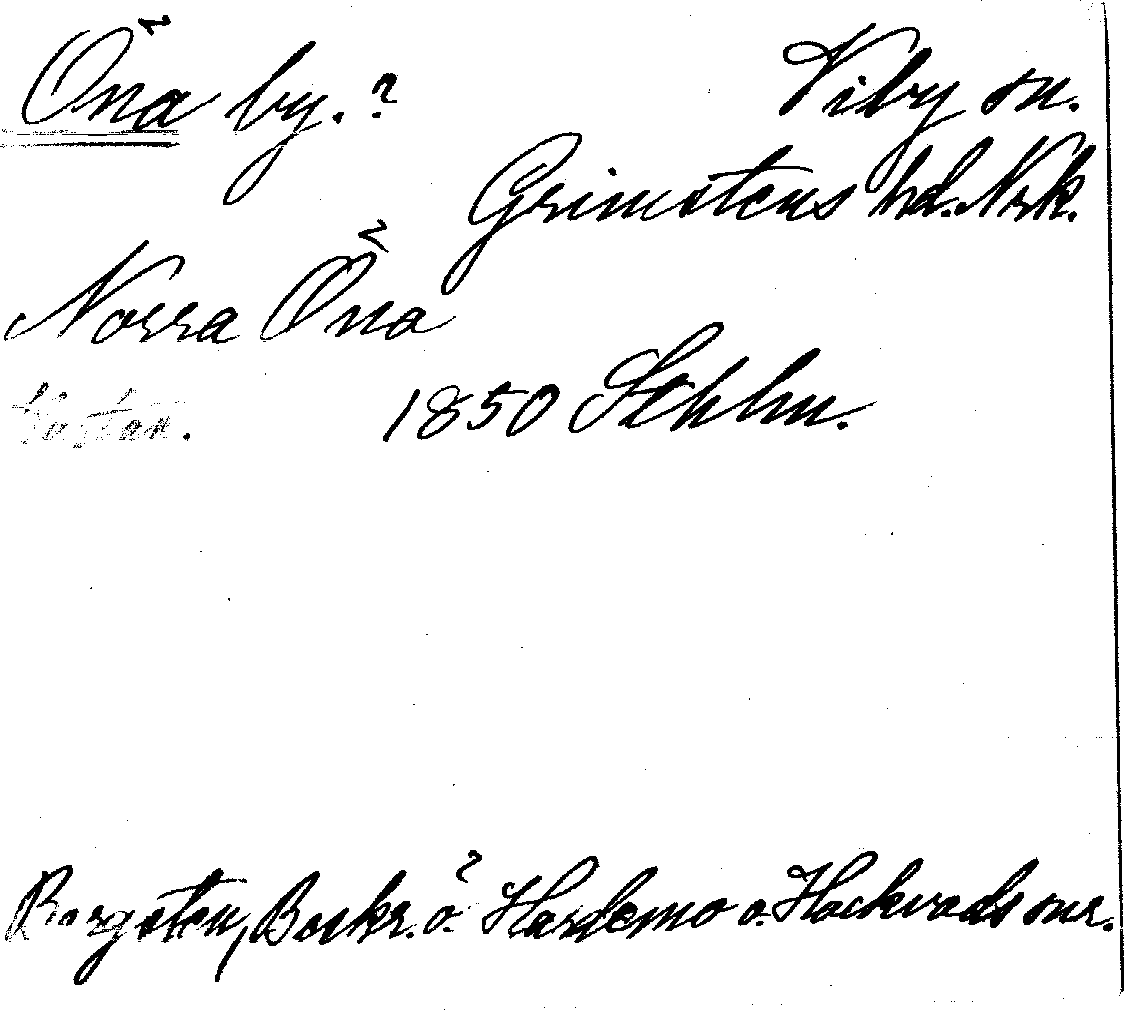 Öna by.?
Viby sn.
Grimstens hd. Nrk.
Norra Öna
1850 Sthlm.
Bergsten, Beskr. ö. Hardemo o. Hackvads snr.